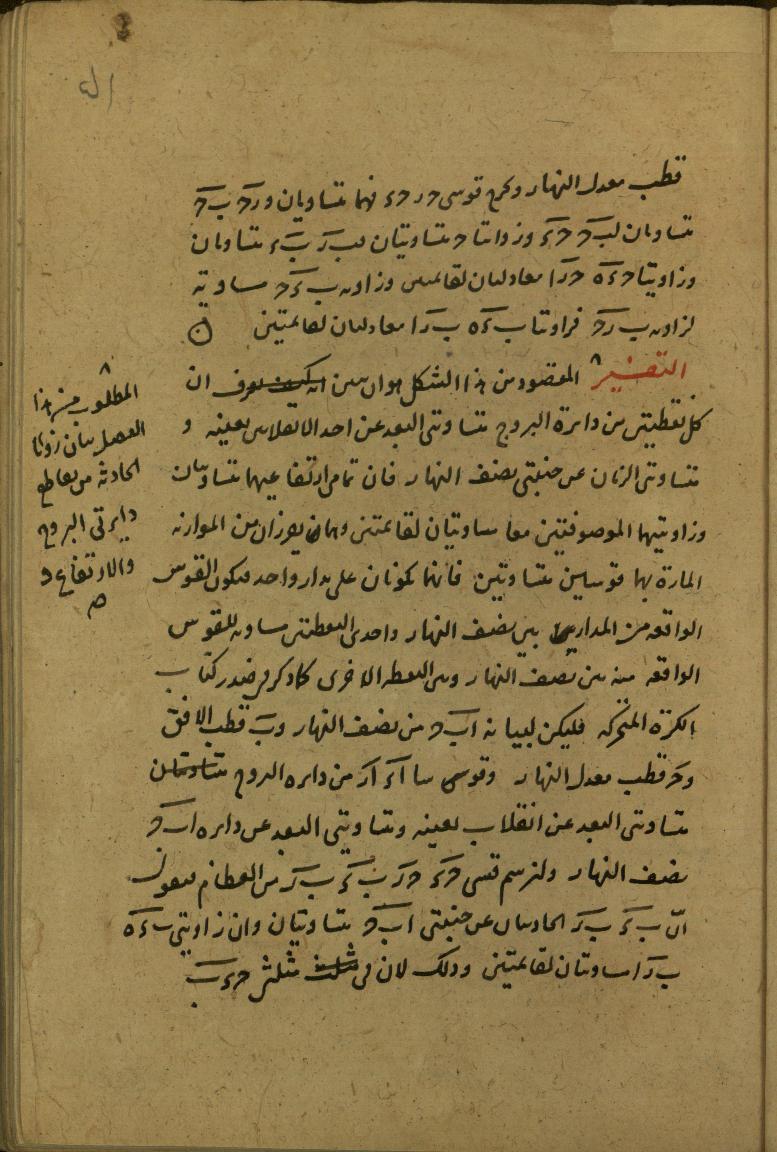 قطب معدل النهار ونخرج قوسي ح ر ح ء فهما متساويان و ر ح ب ح
متساويان ب ح ح ء وزاويتا ح متساويتان فب ر ب ء متساويان
وزاويتا ح ء ه ح ر ا معادلتان لقائمتين وزاوية ب ء ح مساوية
لزاوية ب ر ح فزاويتا ب ء ه ب ر ا معادلتان لقائمتين
التفسير المقصود من هذا الشكل هو ان نبين ان
كل نقطتين من دايرة البروج متساويتى البعد عن احد الانقلابين بعينه و
متساويتى الزمان عن جنبتى نصف النهار فان تمامى ارتفاعيهما متساويان
وزاويتيهما الموصوفتين معا مساويتان لقائمتين وهما تفرزان من الموازية
المارة بهما قوسين متساويتين فانهما تكونان على مدار واحد فتكون القوس
الواقعة من المدار بين نصف النهار واحدى النقطتين مساوية للقوس
الواقعة منه بين نصف النهار وبين النقطة الاخرى كما ذكر فى صدر كتاب
الكرة المتحركة فليكن لبيانه ا ب ح من نصف النهار و ب قطب الافق
و ح قطب معدل النهار وقوسى ا ء ا ر من دايرة البروج
متساويتى البعد عن انقلاب بعينه ومتساويتى البعد عن دايرة ا ب ح
نصف النهار ولنرسم قسى ح ء ح ر ب ء ب ر من العظام فنقول
ان ب ء ب ر الحادثتان عن جنبتى ا ب ح متساويتان وان زاويتى ب ء ه
ب ر ا مساويتان لقائمتين وذلك لان فى مثلثى ح ء ب
المطلوب من هذا
الفصل بيان زوايا
الحادثة من تقاطع
دايرتى البروج
والارتفاع